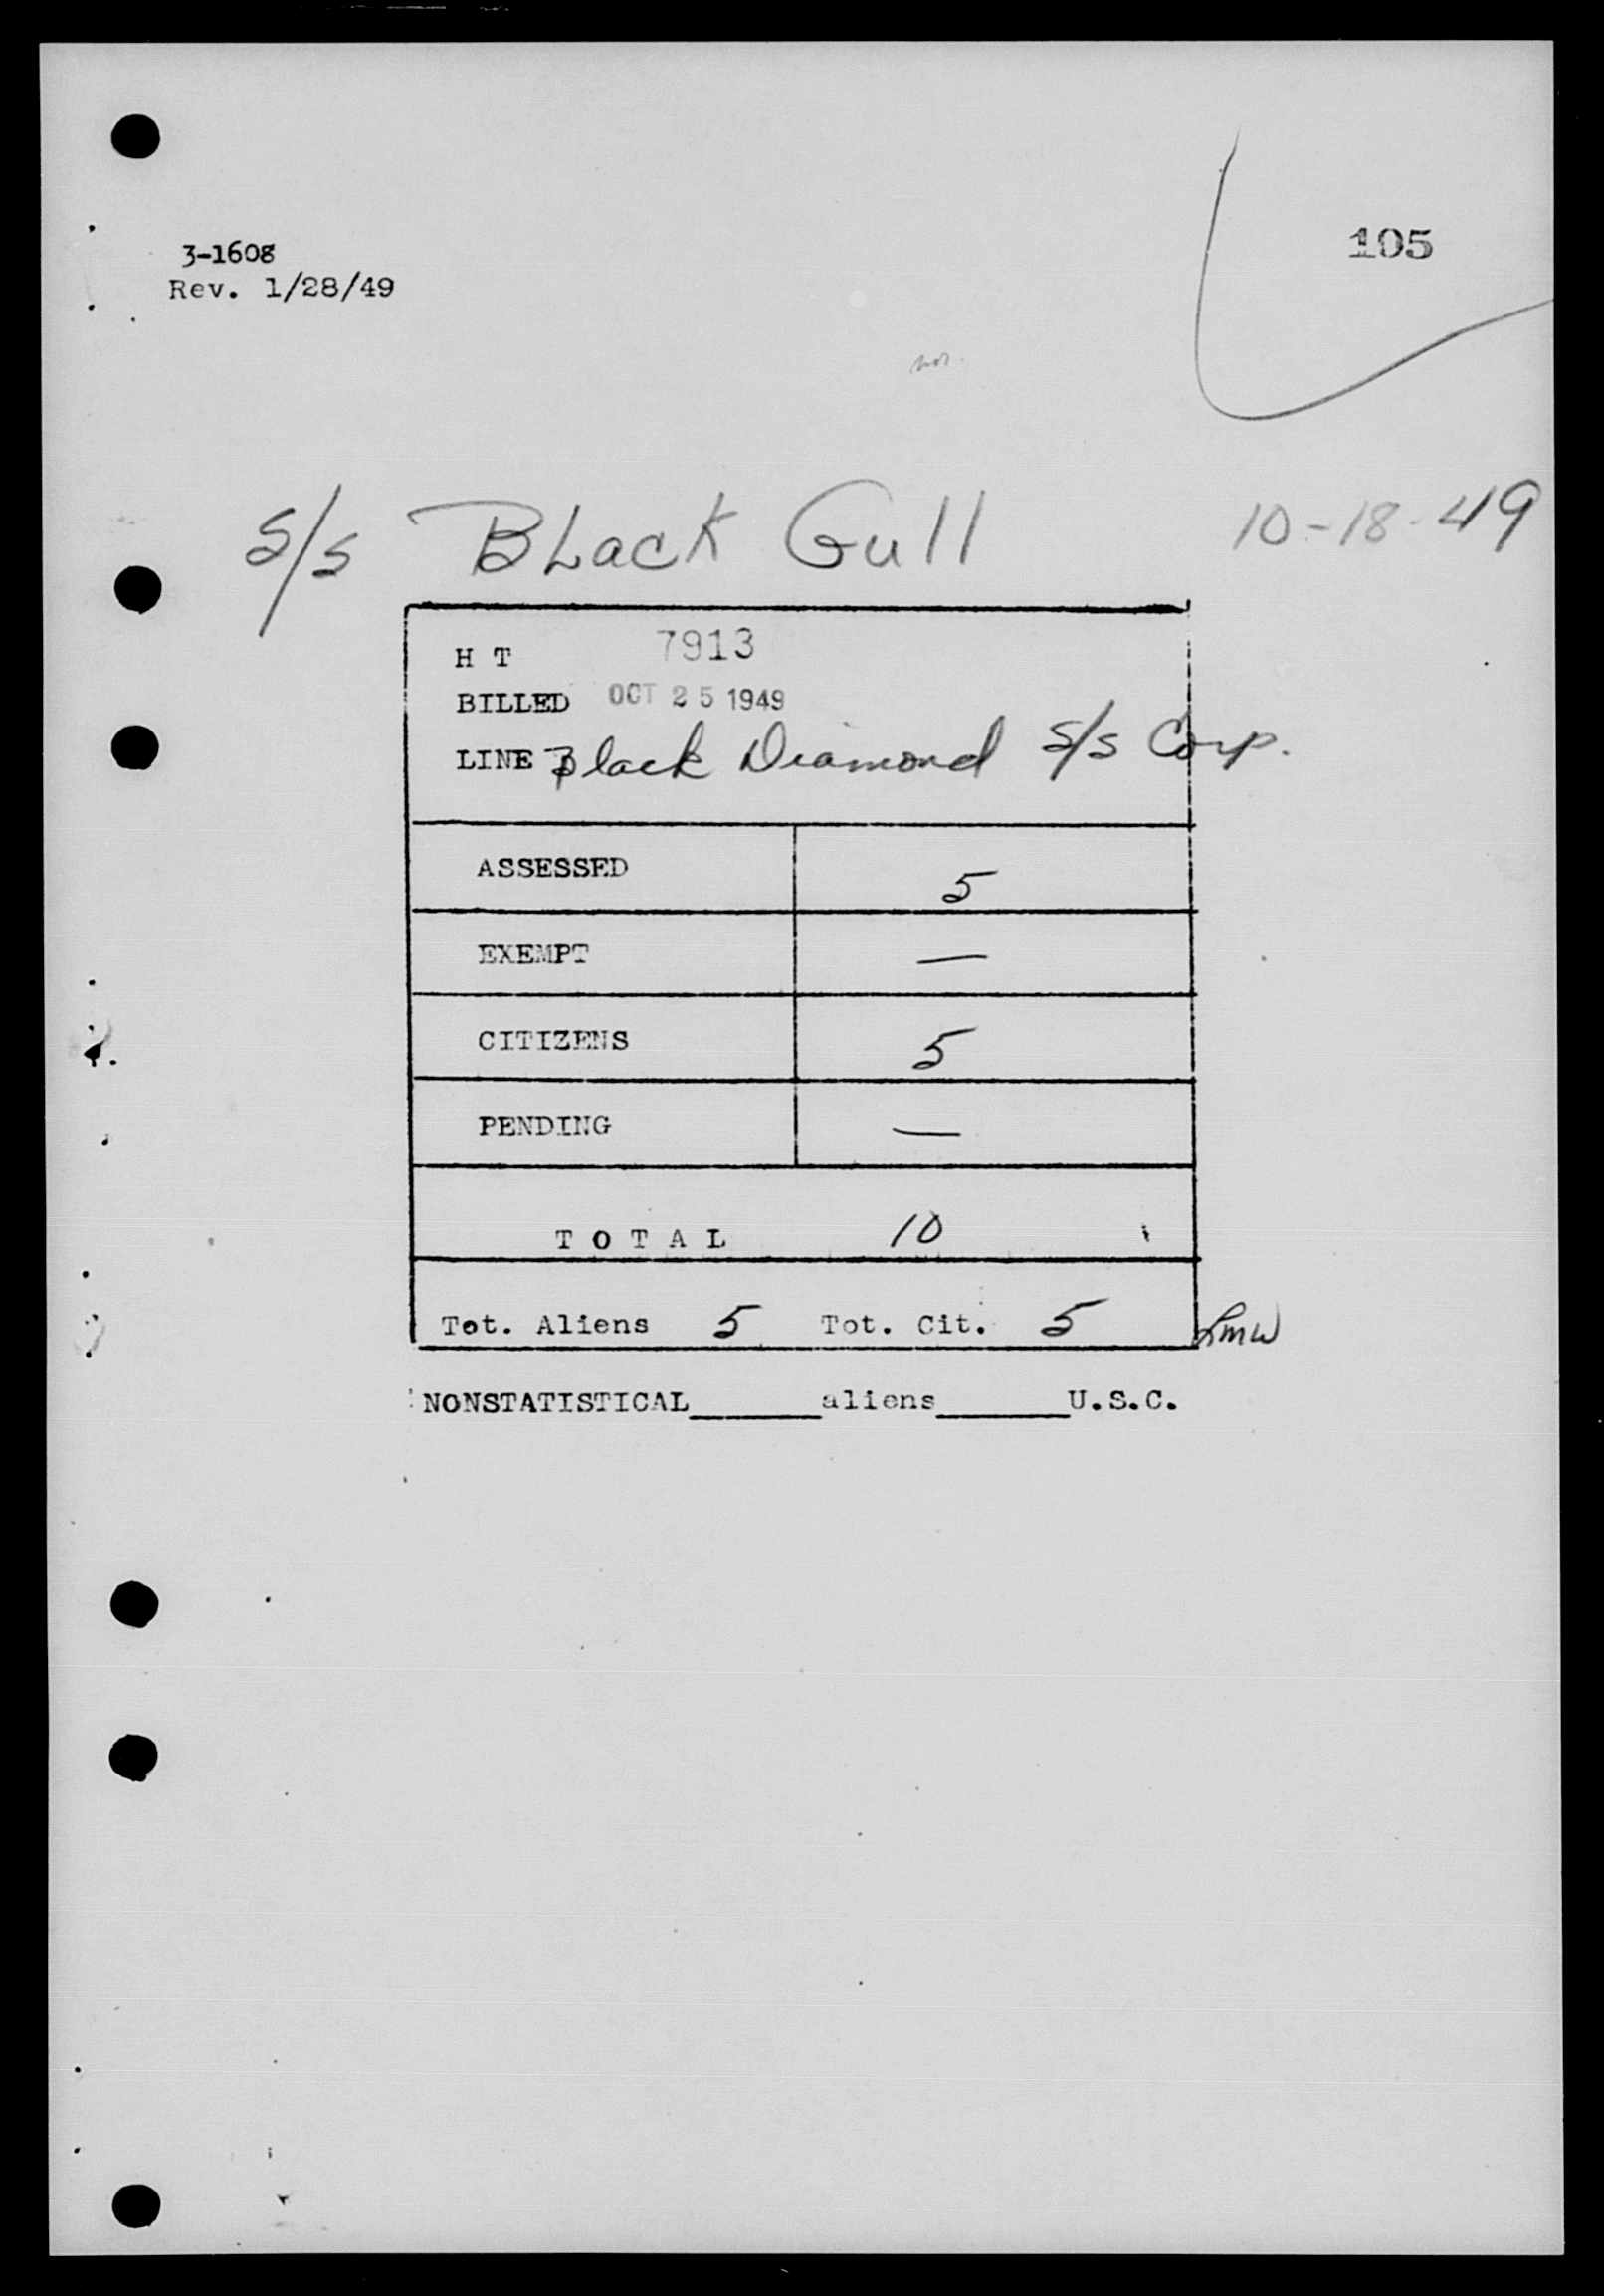 105
3-1608
Rev. 1/28/49
S/S Black Gull 10-18-49
H T 7913
BILLED OCT 25 1949
LINE Black Diamond S/S Corp.
ASSESSED 5
EXEMPT —
CITIZENS 5
PENDING —
TOTAL 10
Tot. Aliens 5 Tot. Cit. 5 LMW
NONSTATISTICAL______aliens______U.S.C.